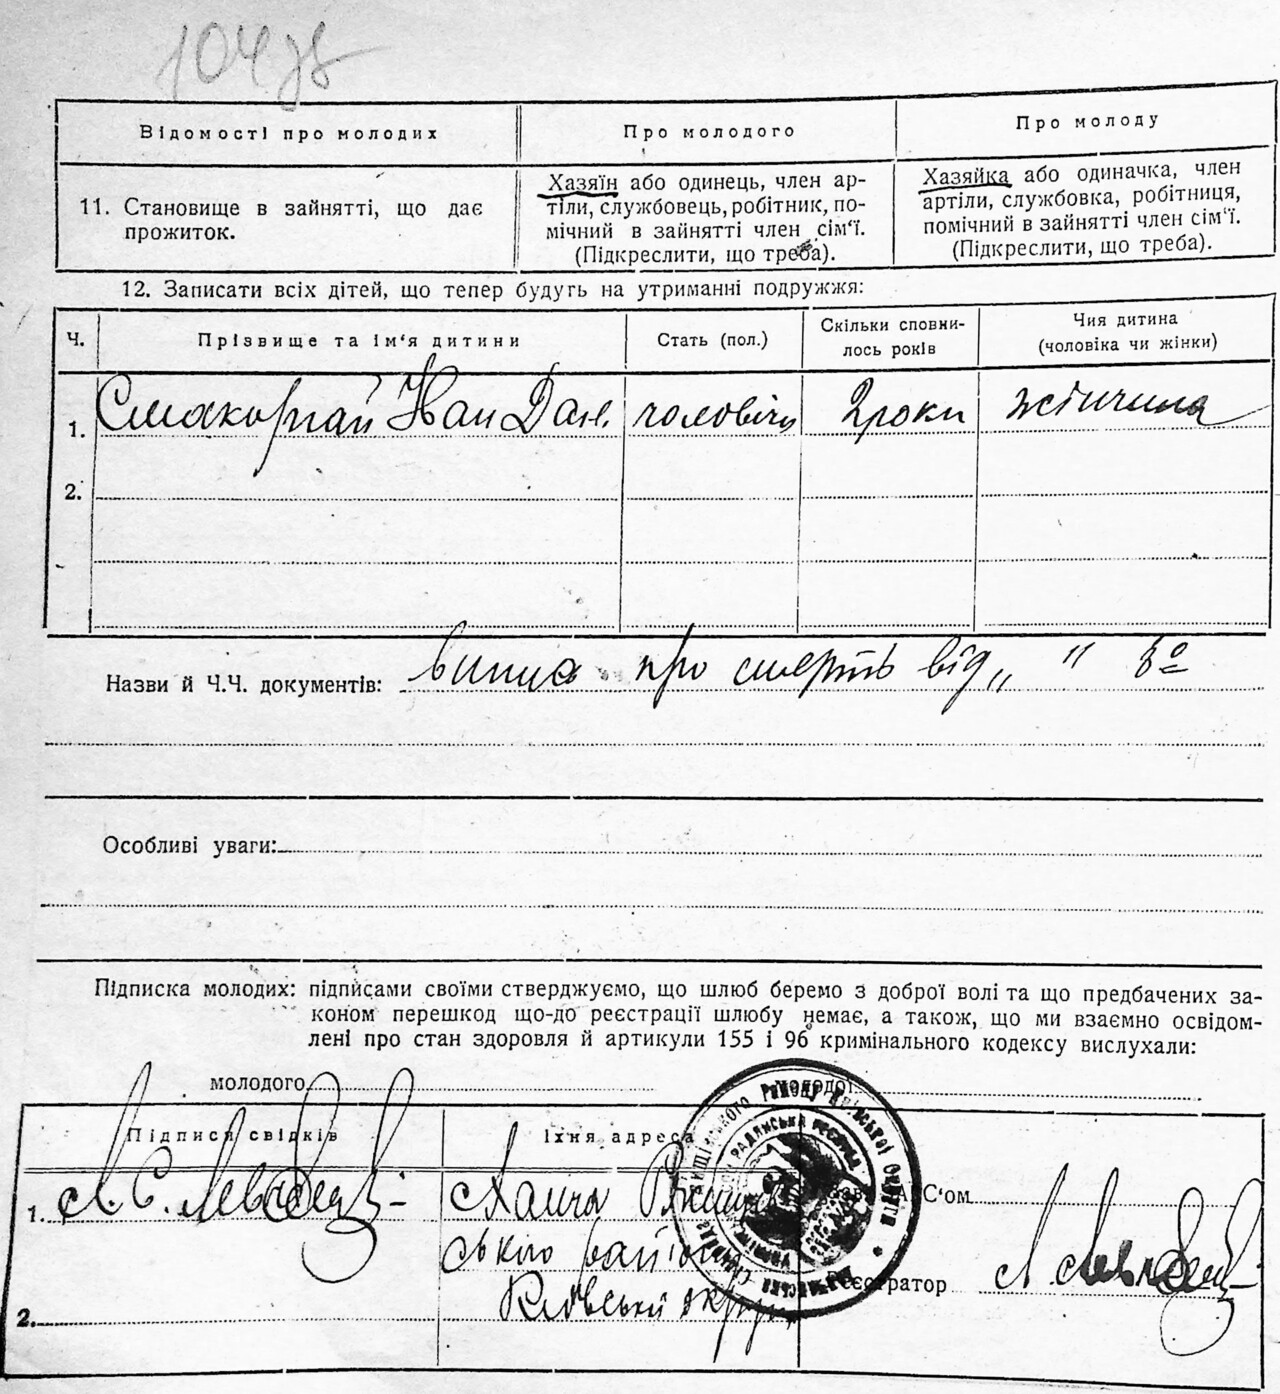 104зв
Відомості про молодих
Про молодого
Про молоду
11. Становище в зайнятті, що дає прожиток.
Хазяїн або одинець, член ар-
тіли, службовець, робітник, по-
мічний в зайнятті член сім'ї.
(Підкреслити, що треба).
Хазяйка або одиначка, член
артіли, службовка, робітниця,
помічний в зайнятті член сім'ї.
(Підкреслити, що треба).
12. Записати всіх дітей, що тепер будуть на утриманні подружжя:
Ч.
Прізвище та ім'я дитини
Стать (пол.)
Скільки сповни-
лось років
Чия дитина
(чоловіка чи жінки)
1. Іван Дан. 2 роки жіночина
2.
Назви й Ч.Ч. документів: випис про смерть від „ “
Особливі уваги:
Підписка молодих: підписами своїми стверджуємо, що шлюб беремо з доброї волі та що предбачених за-
коном перешкод що-до реєстрації шлюбу немає, а також, що ми взаємно освідом-
лені про стан здоровля й артикули 155 і 96 кримінального кодексу вислухали:
молодого молодої
Підписи свідків
Їхня адреса
1. Ханча
ського району
Київської округи
С'ом
Реєстратор
2.